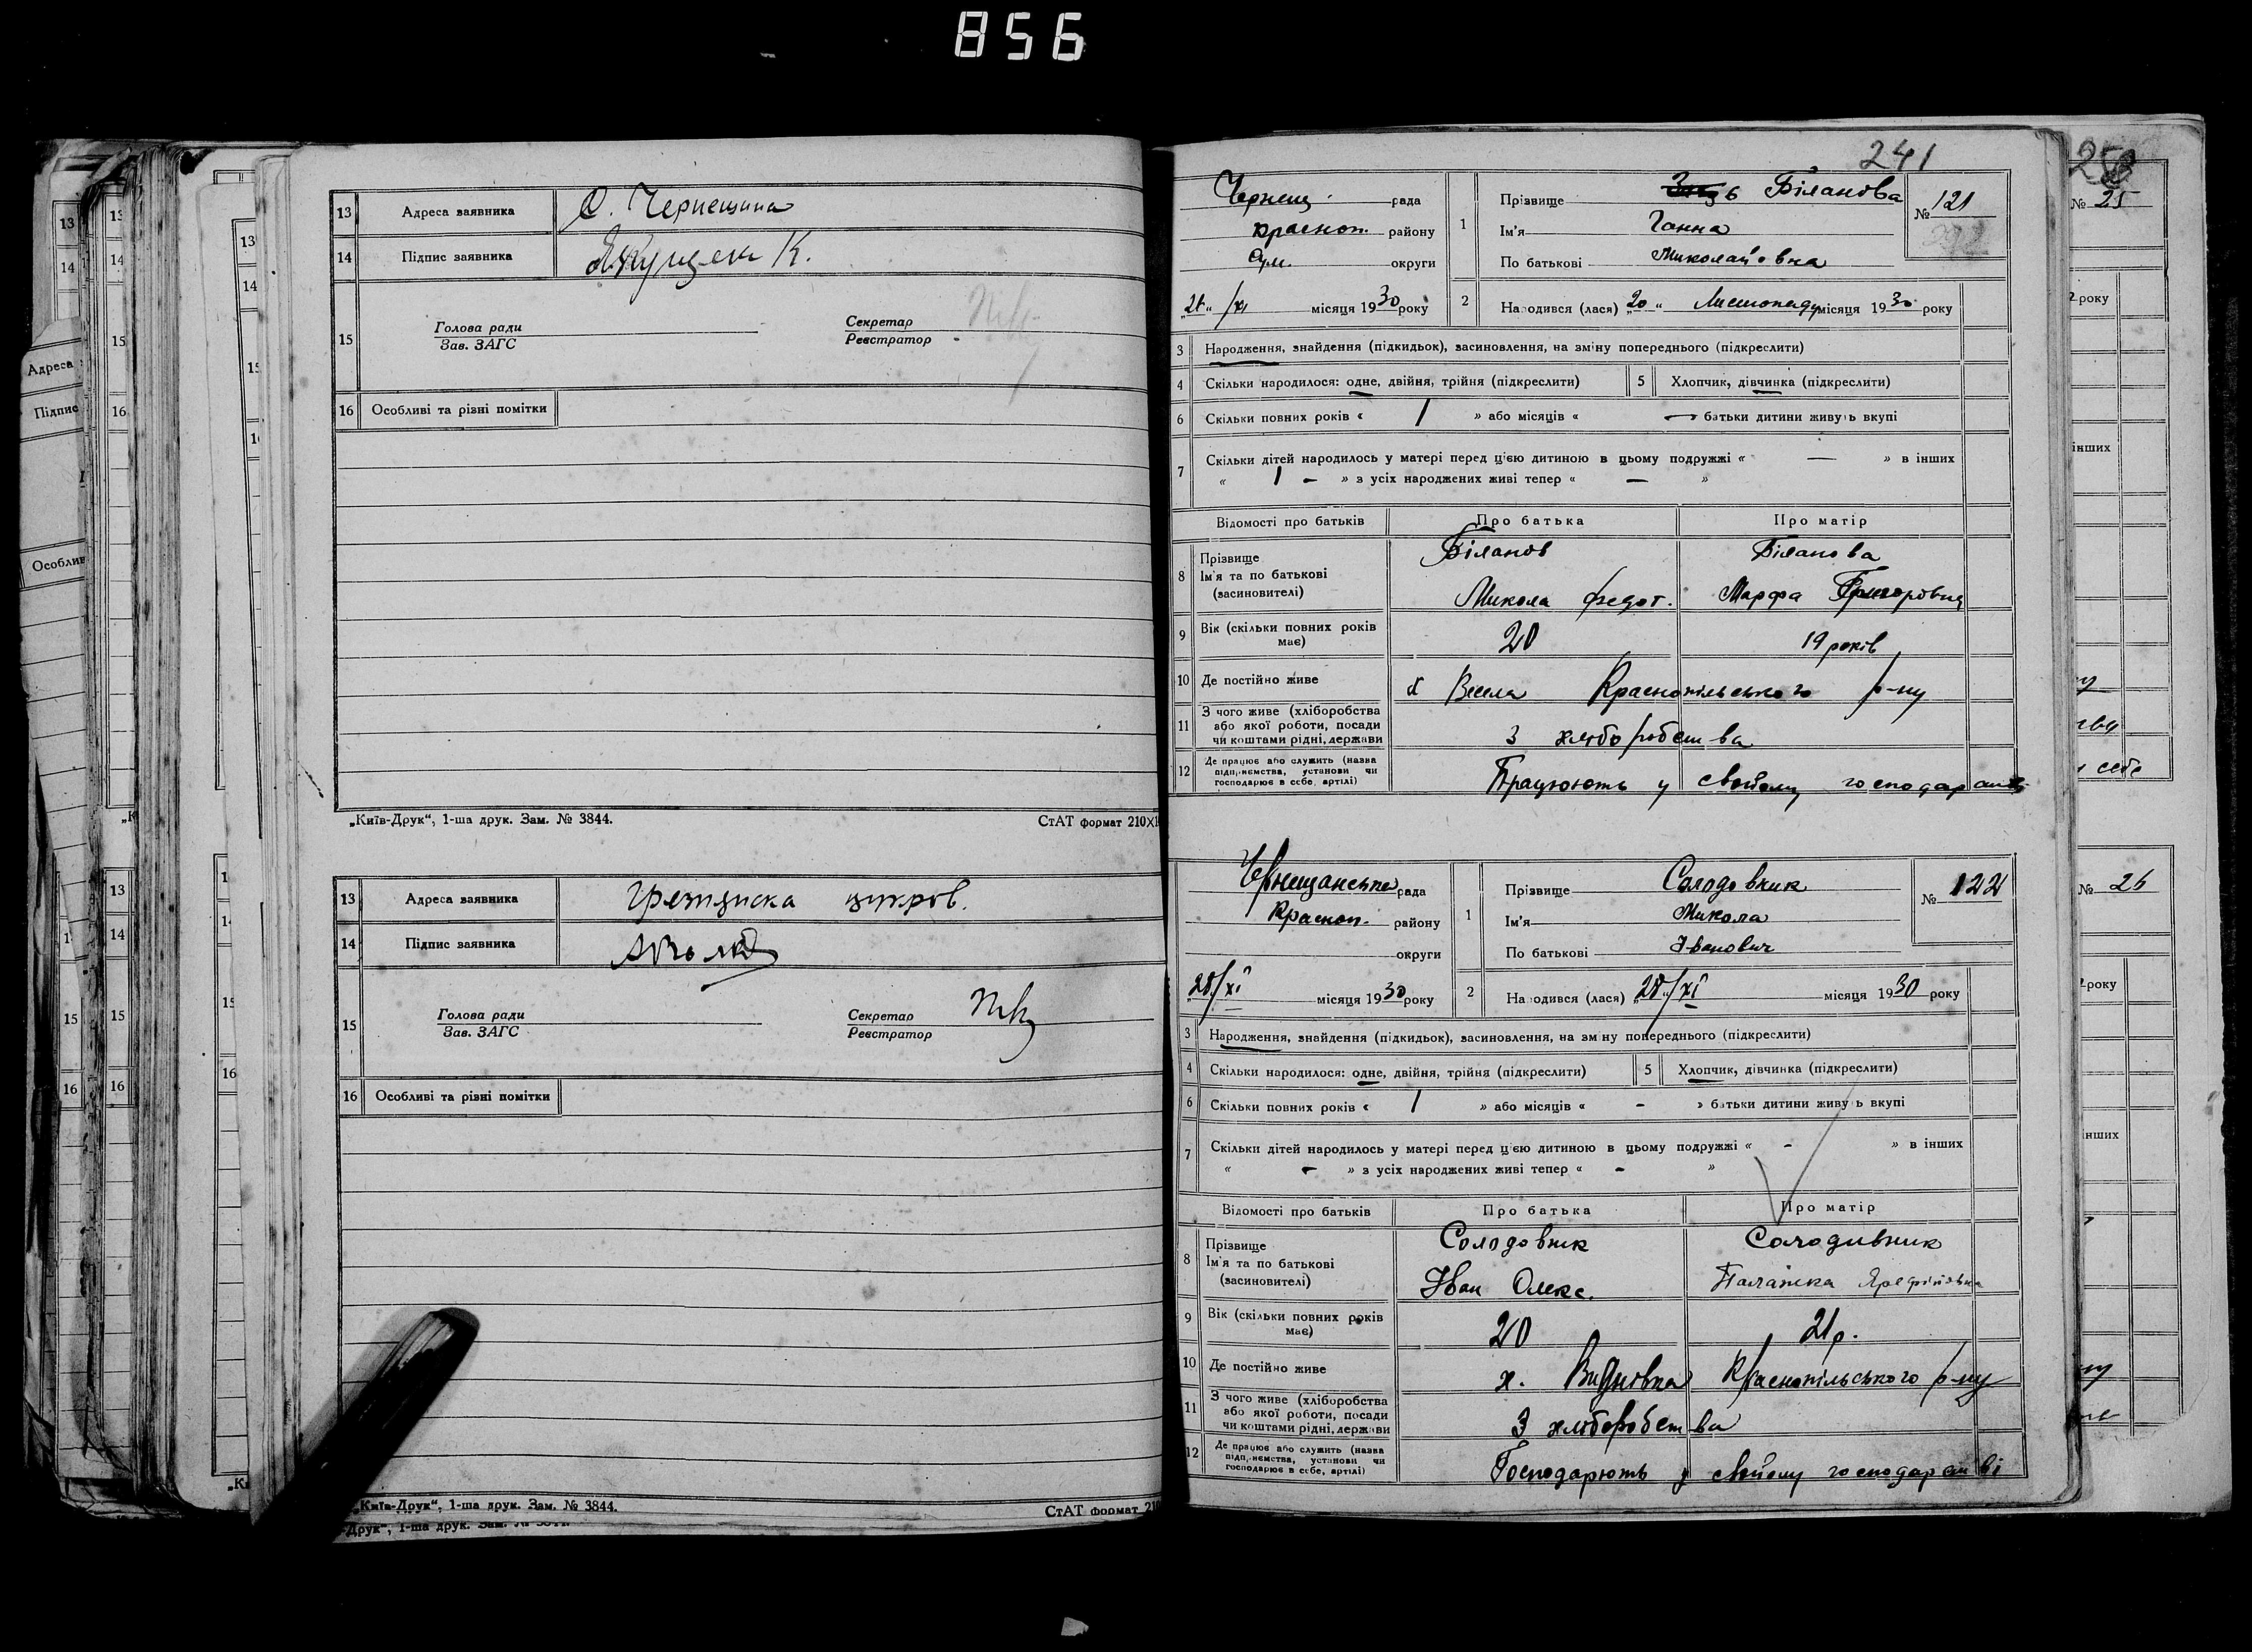 856
13 Адреса заявника С. Чернещина
14 Підпис заявника К.
15 Голова ради Секретар
Зав. ЗАГС Реєстратор
16 Особливі та різні помітки
„Київ-Друк“, 1-ша друк. Зам. № 3844. СтАТ формат 210X
13 Адреса заявника цукров.
14 Підпис заявника
15 Голова ради Секретар
Зав. ЗАГС Реєстратор
16 Особливі та різні помітки
„Київ-Друк“, 1-ша друк. Зам. № 3844. СтАТ формат 210
241
Чернещ. рада
Красноп. району
Сум. округи
26 /XI місяця 1930 року
1 Прізвище Біланова
№ 121
Ім'я Ганна
По батькові Миколаївна
2 Народився (лася) „20“ Листопаду місяця 1930 року
3 Народження, знайдення (підкидьок), засиновлення, на зміну попереднього (підкреслити)
4 Скільки народилося: одне, двійня, трійня (підкреслити) 5 Хлопчик, дівчинка (підкреслити)
6 Скільки повних років « 1 » або місяців « — батьки дитини живуть вкупі
7 Скільки дітей народилось у матері перед цією дитиною в цьому подружжі « — » в інших
« 1 — » з усіх народжених живі тепер « — »
Відомості про батьків Про батька Про матір
8 Прізвище Біланов Біланова
Ім'я та по батькові
(засиновителі) Микола Федот. Марфа Григоровна
9 Вік (скільки повних років має) 20 19 років
10 Де постійно живе х Весела Краснопільського р-ну
11 З чого живе (хліборобства
або якої роботи, посади
чи коштами рідні, держави З хлюборобства
12 Де працює або служить (назва
підприємства, установи чи
господарює в себе, артілі) Працюють у свойому господарстві
Чернещанська рада
Красноп. району
округи
28/XI місяця 1930 року
1 Прізвище Солодовник
№ 122
Ім'я Микола
По батькові Іванович
2 Народився (лася) 28/XI місяця 1930 року
3 Народження, знайдення (підкидьок), засиновлення, на зміну попереднього (підкреслити)
4 Скільки народилося: одне, двійня, трійня (підкреслити) 5 Хлопчик, дівчинка (підкреслити)
6 Скільки повних років « 1 » або місяців « - » батьки дитини живуть вкупі
7 Скільки дітей народилось у матері перед цією дитиною в цьому подружжі « - » в інших
« - » з усіх народжених живі тепер « - »
Відомості про батьків Про батька Про матір
8 Прізвище Солодовник Солодивник
Ім'я та по батькові
(засиновителі) Іван Олекс. Палажка
9 Вік (скільки повних років має) 20 21 р.
10 Де постійно живе х. Видновка Краснопільського р-ну
11 З чого живе (хліборобства
або якої роботи, посади
чи коштами рідні, держави З хлюборобства
12 Де працює або служить (назва
підприємства, установи чи
господарює в себе, артілі) Господарють у свойому господарстві
№ 25
року
інших
себе
№ 26
року
інших